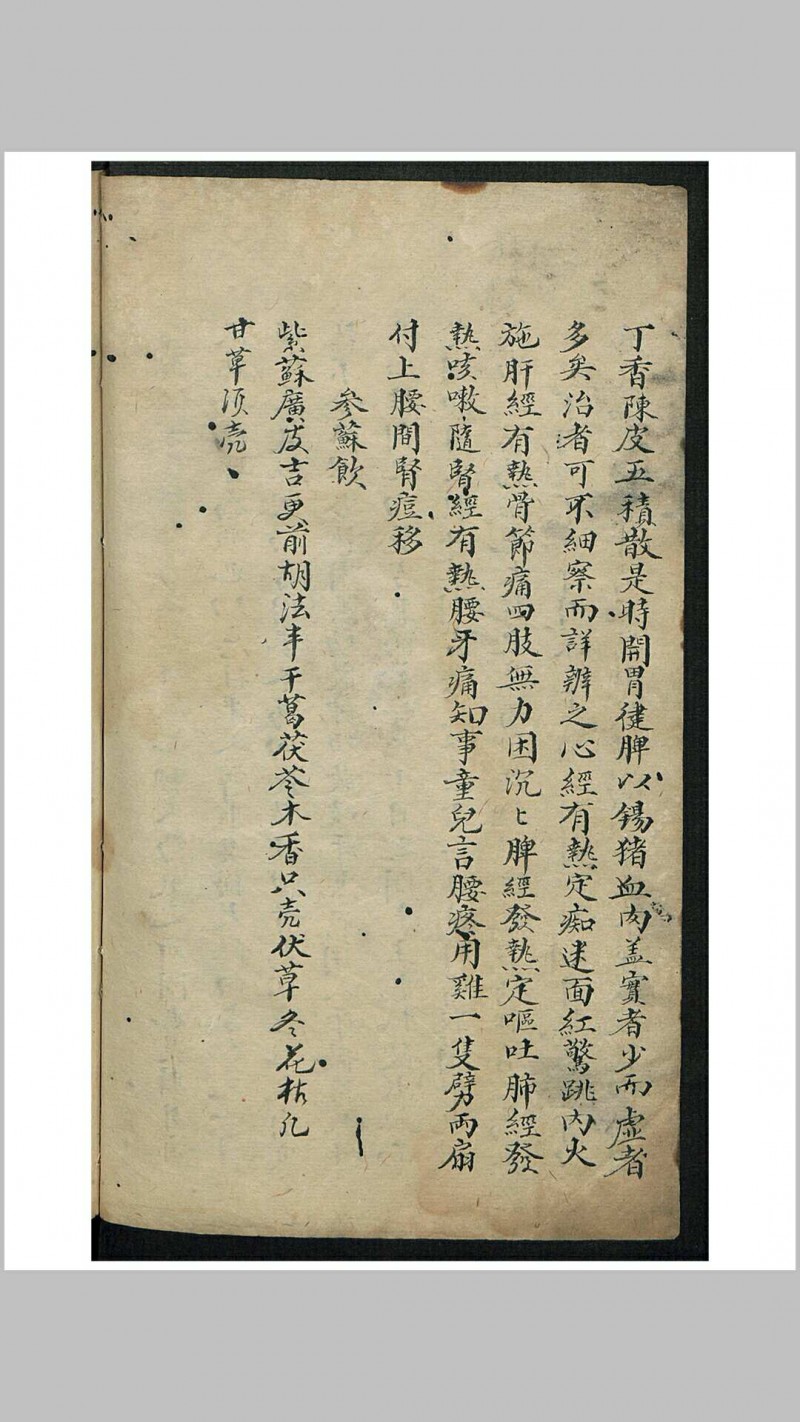 丁香陳皮五積散是時開胃健脾以錫猪血肉盖實者少而虛者
多矣治者可不細察而詳辨之心經有熱定痴迷面紅驚跳內火
施肝經有熱骨節痛四肢無力困沉ヒ脾經發熱定嘔吐肺經發
熱咳嗽隨腎經有熱腰牙痛知事童兒言腰疼用雞一隻劈兩扇
付上腰間腎痘移
參蘇飲
紫蘇廣皮吉更前胡法半干葛茯苓木香只壳伏草冬花枯凡
甘草須壳